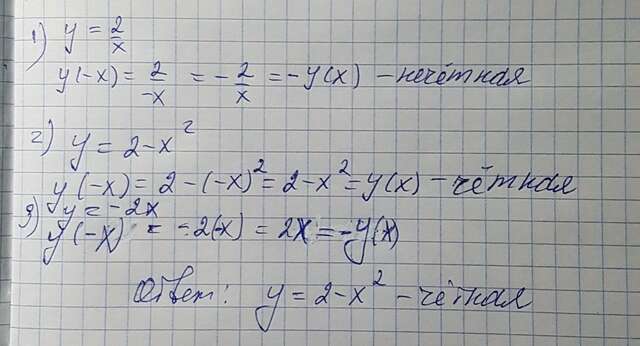 1) y = 2/x
y(-x) = 2/-x = -2/x = -y(x) - нечётная
2) y = 2-x²
y(-x) = 2-(-x)² = 2-x² = y(x) - чётная
3) y = -2x
y(-x) = -2(-x) = 2x = -y(x)
Ответ: y = 2-x² - чётная